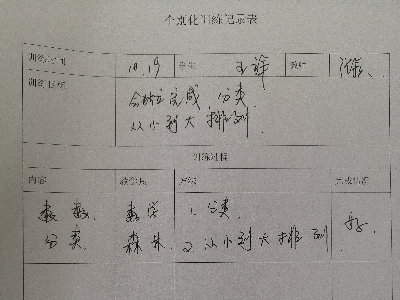 个别化训练记录表
训练时间 10.19 学生 王祥 教师
训练目标 会独立完成,分类
从小到大排列.
训练过程
内容 教学具 步骤 完成情况
数数, 数学 1. 分类, 好.
分类 森林 2. 从小到大排列